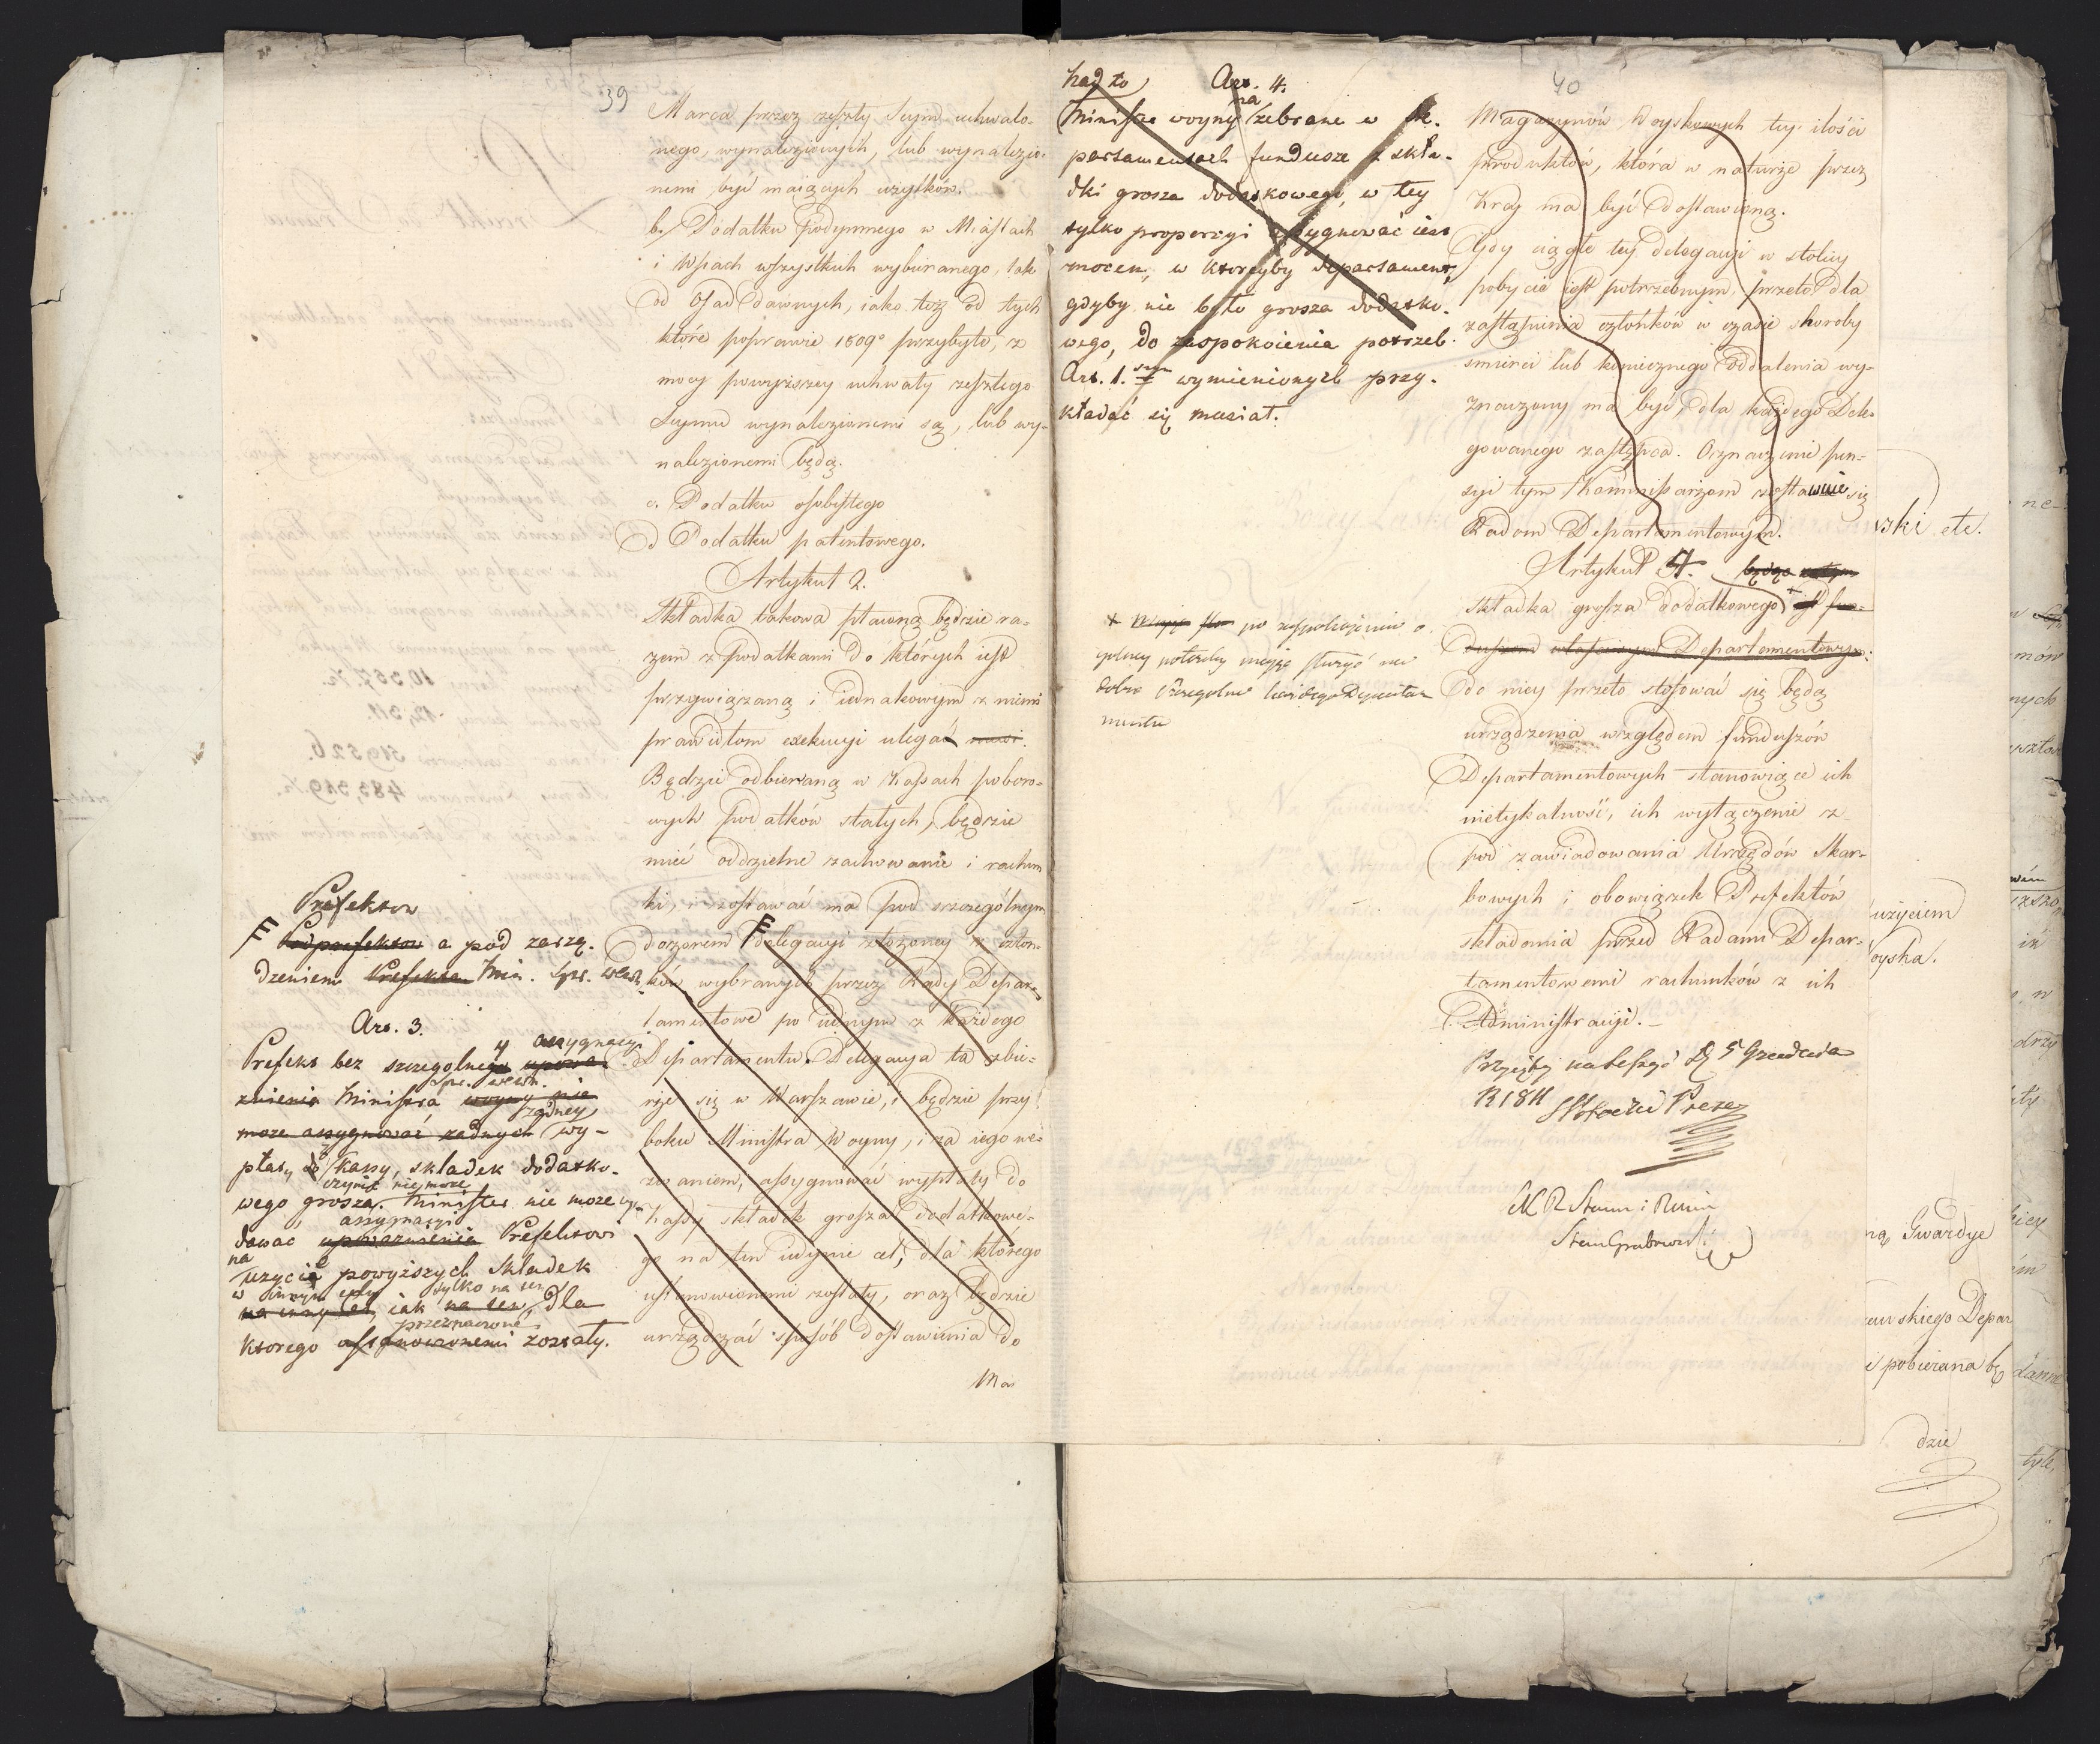 39
Marca przez zeszły Seym uchwalo-
nego, wynalezionych, lub wynalezio-
nemi być maiących użytków.
b. Podatku Podymnego w Miastach
i Wsiach wszystkich wybieranego, tak
od Osad dawnych, iako też od tych
które poprawie 1809º przybyły, z
mocy powyższey uchwały zeszłego
Seymu wynalezionemi są, lub wy-
nalezionemi będą.
c. Podatku osobistego
d Podatku patentowego.
Artykuł 2.
Składka takowa płaconą będzie ra-
zem z podatkami do których iest
przywiązaną i iednakowym z niemi
prawidłom exekucyi ulegać musi.
Będzie odbieraną w Kassach poboro-
wych podatków stałych, będzie
mieć oddzielne zachowanie i rachun
ki, zostawać ma pod szczególnym
dozorem F Delegacyi złożoney z człon-
ków wybranych przez Rady Depar-
tamentowe po iednym z każdego
Departamentu. Delegacya ta zbie-
rze się w Warszawie, i będzie przy
boku Ministra Woyny, i za iego we-
zwaniem, assygnować wypłaty do
Kassy składek grosza dodatkowe-
go na ten iedynie cel, dla którego
ustanowionemi zostały, oraz będzie
urządzać sposób dostawienia do
Ma
Prefektow
F Podprefektow a pod zarzą-
dzeniem Prefekta Min. Spr. Wewn.
Art. 3.
y assygnacyi
Prefekt bez szczegolnego upowa
Spr. wewn.
znienia Ministra woyny nie
żadney
może assygnować żadnych wy-
płaty z kassy, składek dodatko-
czynić nie może
wego grosza. Minister nie może wy-
assygnacyi
dawać upoważnienia Prefektowi
na
użycie powyższych składek
w innym celu tylko na ten
na inny cel, iak na ten, dla
przeznaczone
ktorego ustanowionemi zostały.
40
nad to Art. 4.
na
Minister woyny zebrane w De-
partamentach fundusze z skła-
dki grosza dodatkowego, w tey
tylko proporcyi assygnować iest
mocen, w ktoreyby departament,
gdyby nie było grosza dodatko-
wego, do zaspokoienia potrzeb
Art. 1. szym wymienionych przy-
kładać się musiał.
po zaspokojeniu
potrzeby służyć na
dobro szczegolne każdego Departa
mentu
Magazynów Woyskowych tey ilości
produktów, która w naturze przez
Kray ma być dostawioną.
Gdy ciągłe tey delegacyi w stolicy
pobycie iest potrzebnym, przeto dla
zastąpienia członków w czasie choroby
śmierci lub koniecznego oddalenia wy-
znaczony ma być dla każdego Dele-
gowanego zastępca. Oznaczenie pen-
syi tym Kommissarzom zostawuie się
Radom Departamentowym.
Artykuł 4.
składka grosza dodatkowego iest fun-
duszem właściwym Departamentowym:
do niey przeto stosować się będą
urządzenia względem funduszów
Departamentowych stanowiące ich
nietykalność, ich wyłączenie z
pod zawiadowania Urzędów Skar-
bowych i obowiązek Prefektów
składania przed Radami Depar-
tamentowemi rachunków z ich
Administracyi.
Przyięty na Sessyi d 5 Grudnia
R 1811
Prezes
Stan Grabowski
wski etc.
użyciem
oyska.
ną Gwardye
awskiego Depar
i pobierana bę
dzie